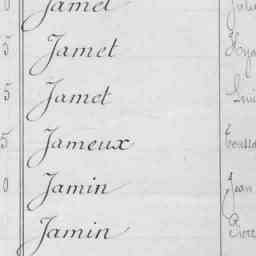 Jamet
5 Jamet
5 Jamet
5 Jameux
0 Jamin Jean
Jamin